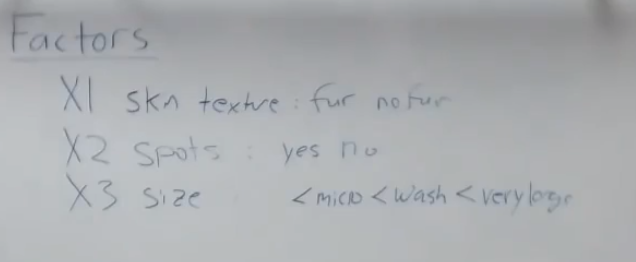 Factors
X1 skn texture : fur no fur
X2 spots : yes no
X3 size <micro <wash <very large